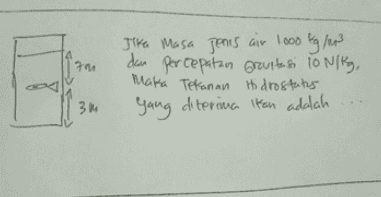 Jika Masa jenis air 1000 kg/m³
7m
dan Percepatan Gravitasi 10 N/kg,
Maka Tekanan Hidrostatis
3m
yang diterima ikan adalah ...